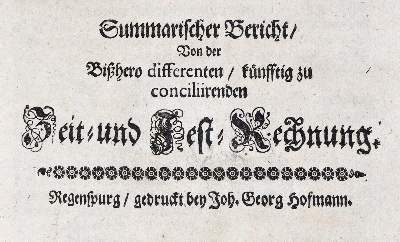 Summarischer Bericht/
Von der
Bißhero differenten / künfftig zu
conciliirenden
Zeit-und Fest-Rechnung.
Regenspurg / gedruckt bey Joh. Georg Hofmann.